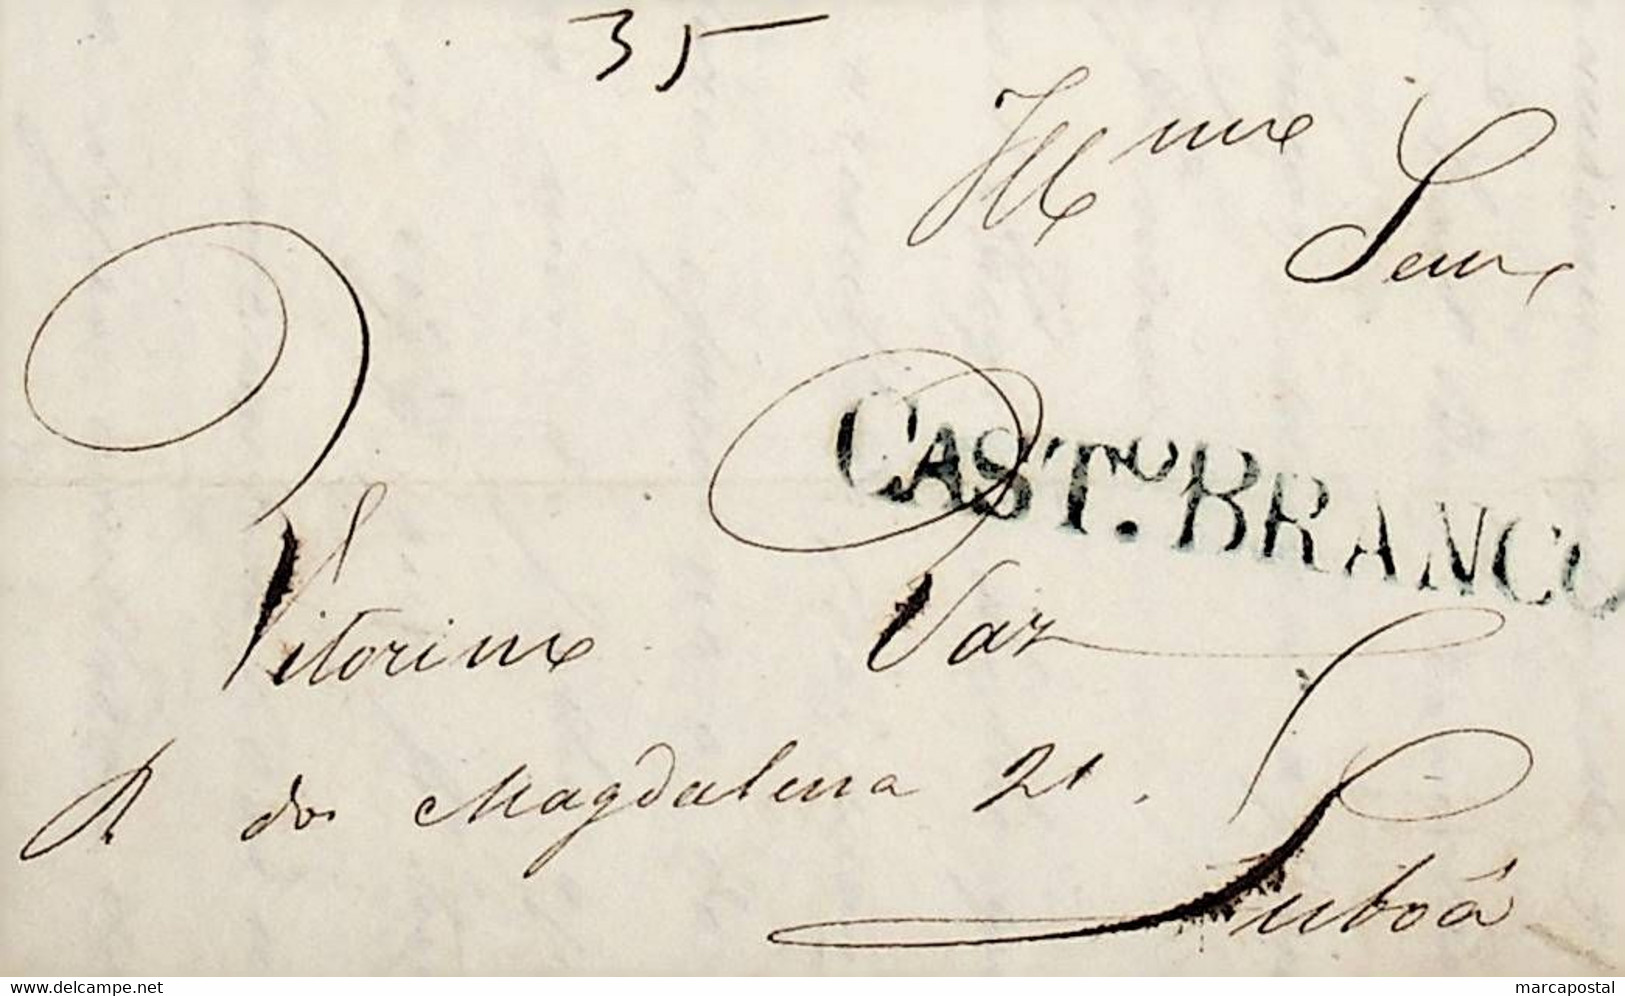 35
Illmo
Senr
CASTº. BRANCO
Vitorino Vaz
R da Magdalena 21.
Lisboâ
www.delcampe.net
marcapostal